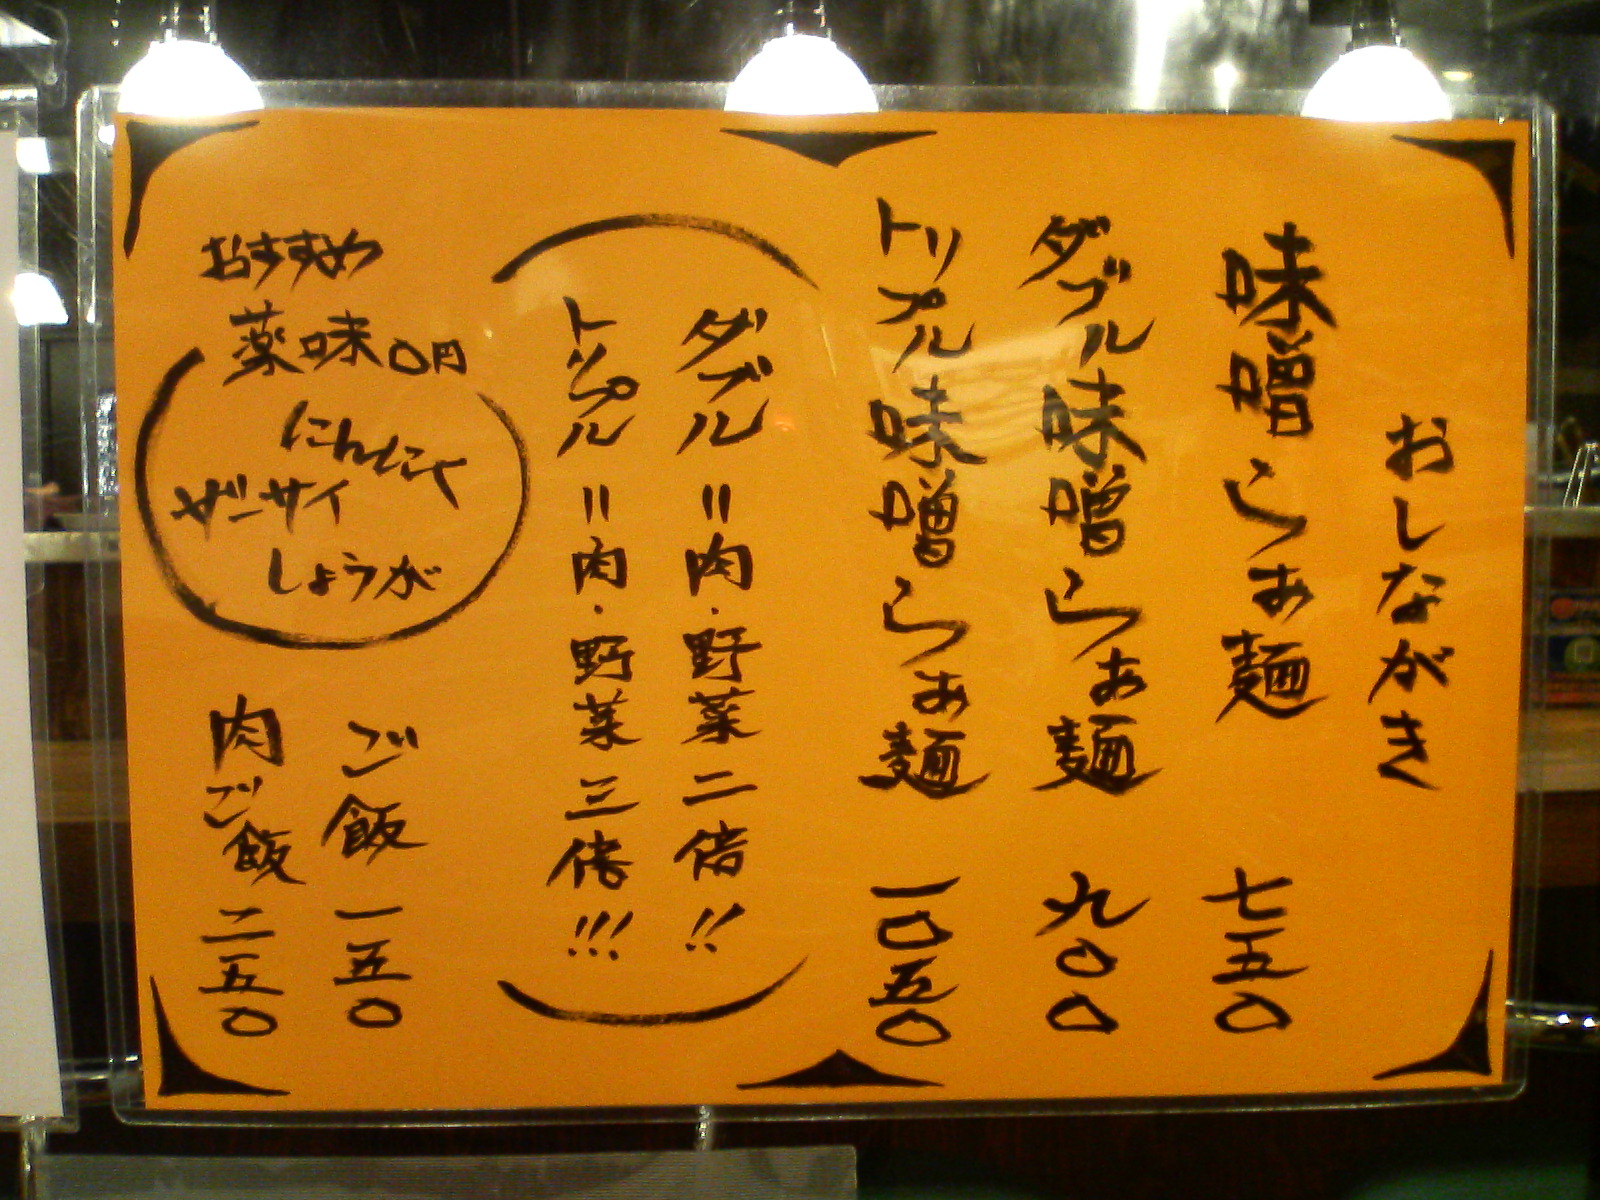 おしながき
味噌らぁ麺 七五〇
ダブル味噌らぁ麺 九〇〇
トリプル味噌らぁ麺 一〇五〇
ダブル=肉・野菜二倍!!
トリプル=肉・野菜三倍!!!
おすすめ
薬味〇円
にんにく
ザーサイ
しょうが
ご飯 一五〇
肉ご飯 二五〇